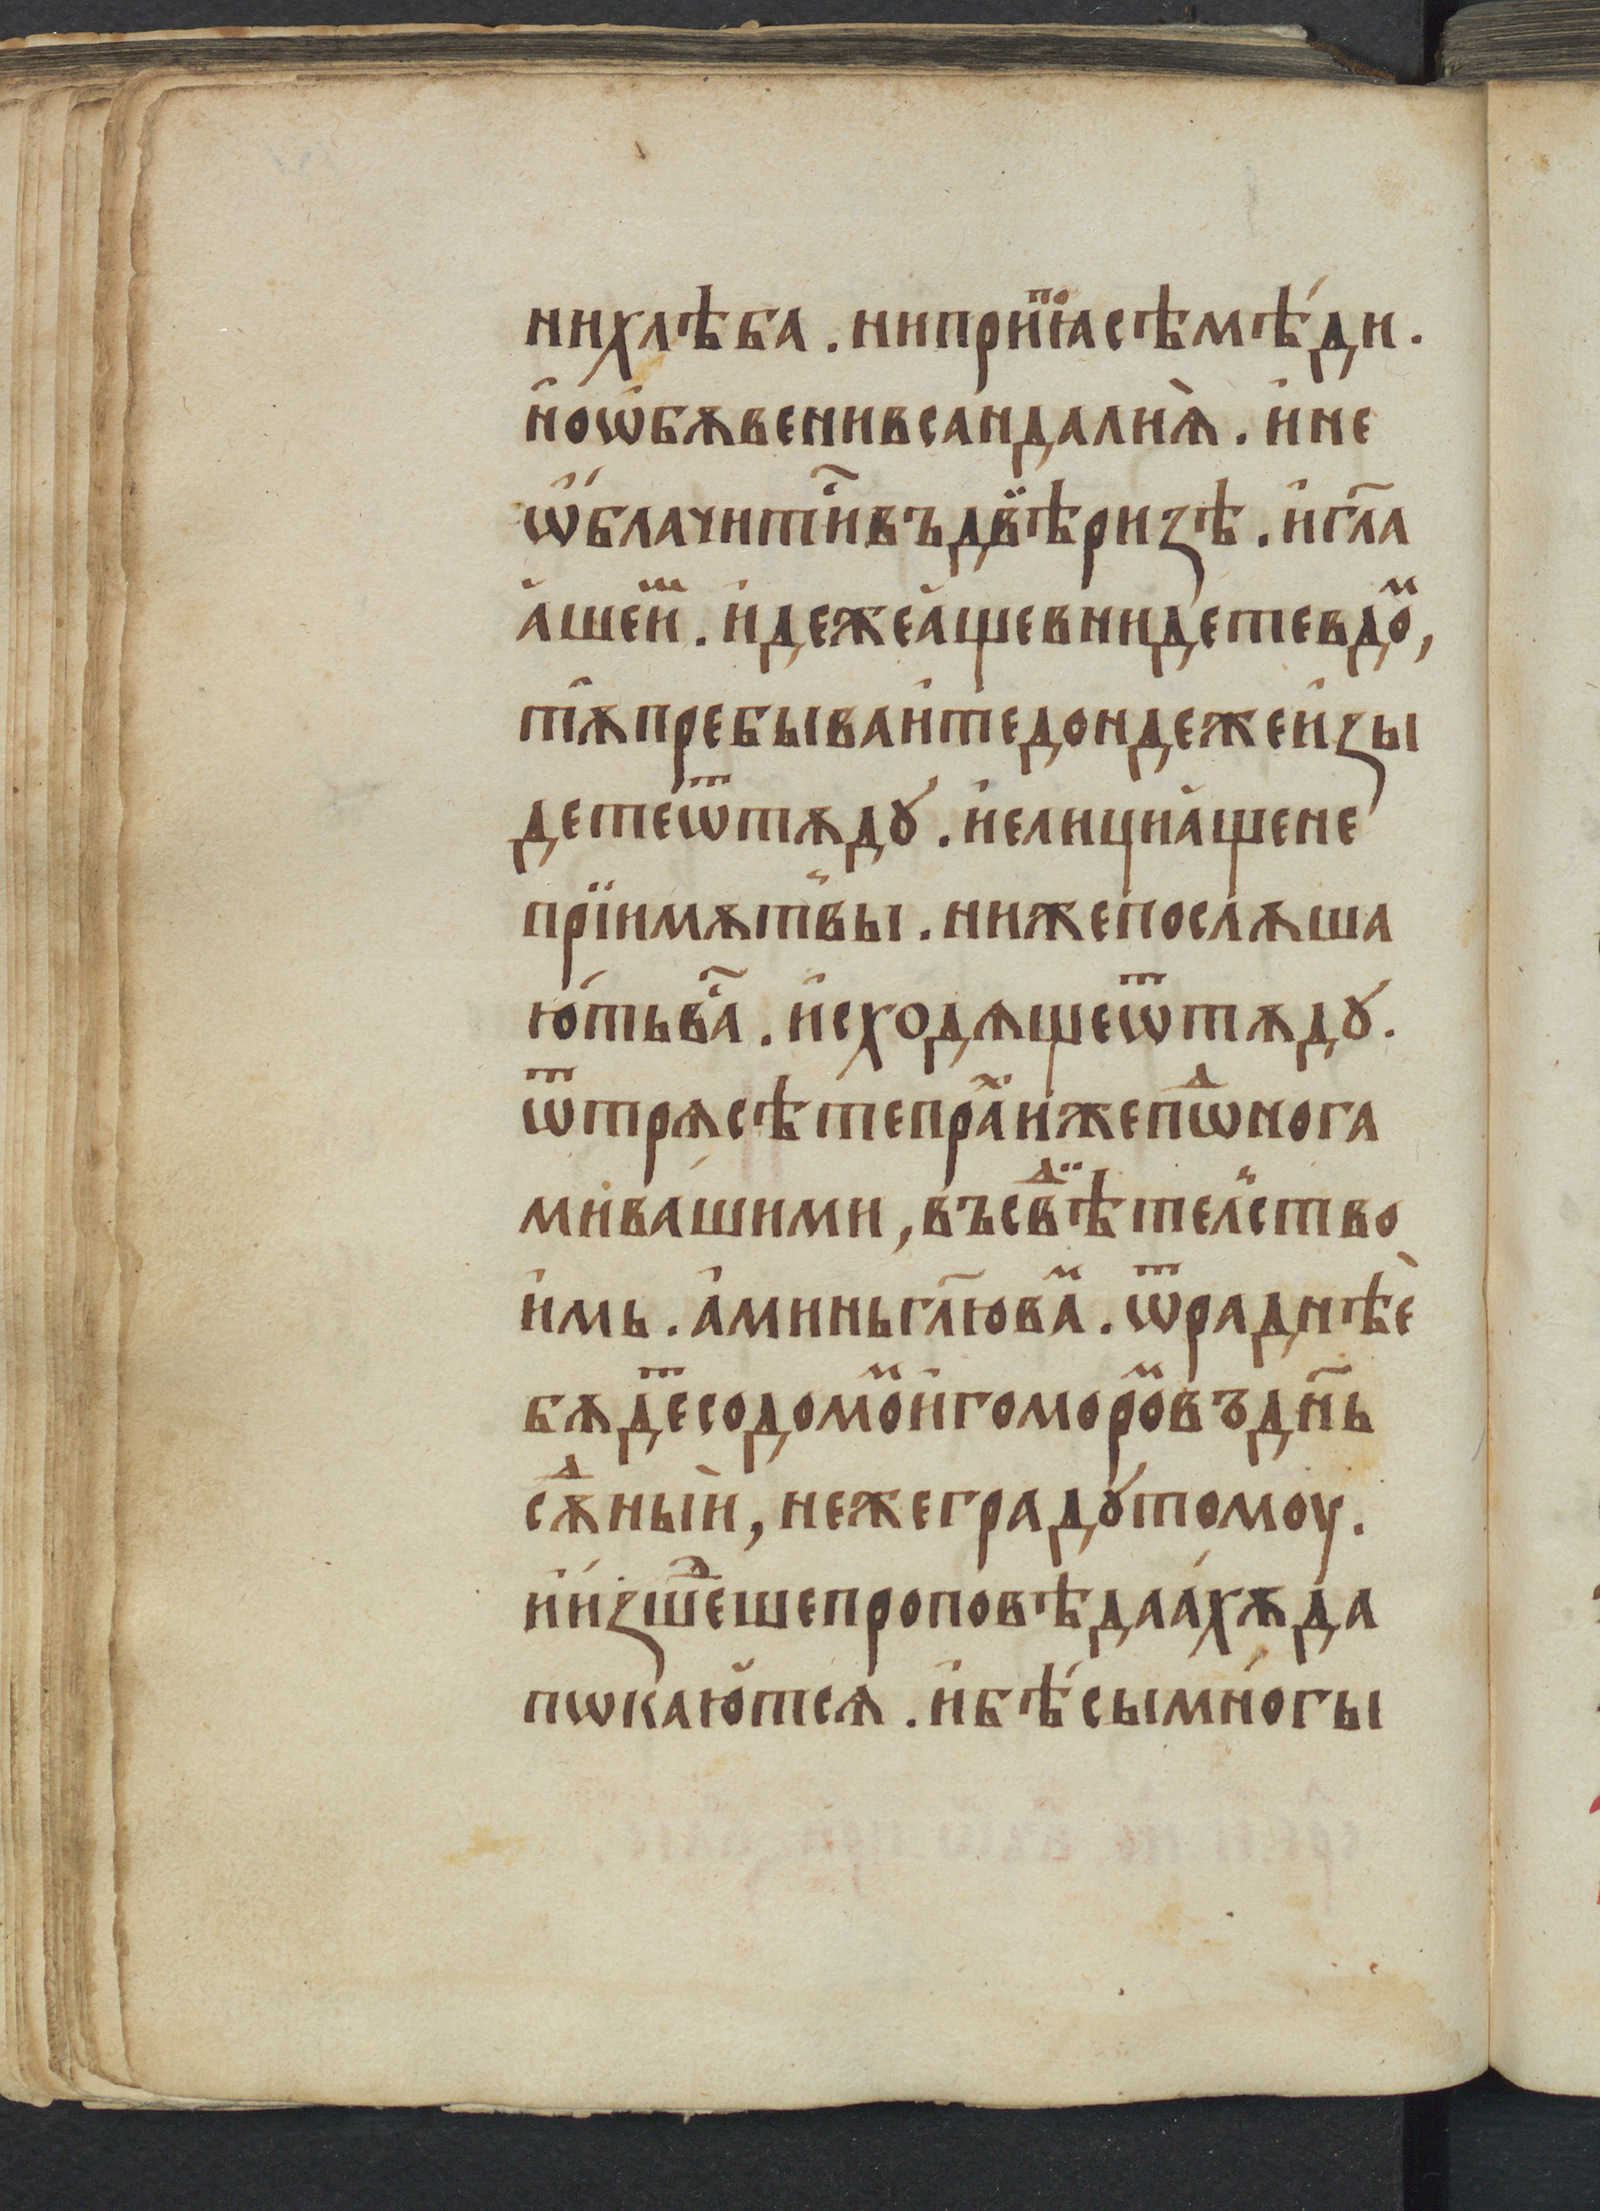 нихлѣба . нипри́ⷫ҇ꙗсѣмѣ́ди .
и҆но҆ѡбѫвенивсандалиѧ̀ . и҆не
ѡ҆́блачитиⷭ҇въдвѣ̈ризѣ . и҆гл҃а
а҆шеⷲи҆ . и҆дежеа҆щевнидетевдоⷨ ,
тѫ̑пребыва҆итедондежеи҆зы
детеѿтѫдꙋ́ . и҆елициа҆щене
прїимѫтⷭвы . нижепослѫша
ю҆́тьваⷭ҇ . и҆сходѧщеѿтѫдꙋ́ .
ѿтрѧсѣтепраⷯи҆жепѡⷣнога
ми҆ва́шими , въсвⷣѣ̈тел̾ство
и҆мь . а҆миньгл҃юваⷨ . ѿраднѣѐ
бѫдеⷮсодомоⷨи҆гомороⷨвъдн҃ь
сѫⷣныѝ , нежеградꙋ́томоу .
и҆и҆́зшеⷣшепроповѣдаа́хѫда
пѡкаю̆тсѧ . и҆бѣ́сымно́гы